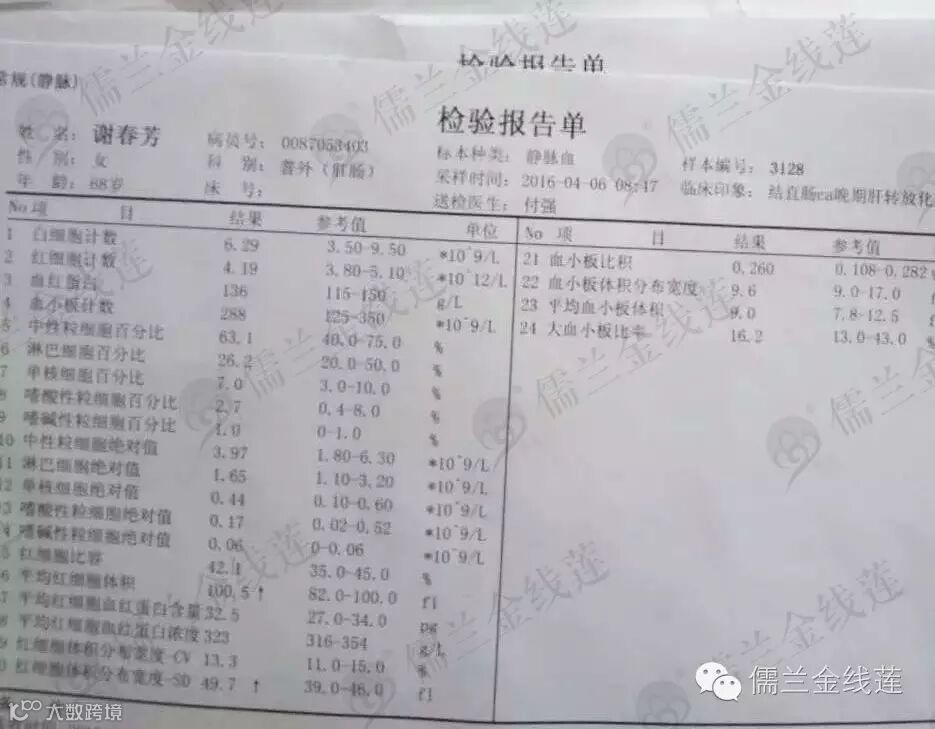 检验报告单
常规(静脉)
检验报告单
姓 名: 谢春芳 病员号: 0087053403 标本种类: 静脉血 样本编号: 3128
性 别: 女 科 别: 普外(肛肠) 采样时间: 2016-04-06 08:47 临床印象: 结直肠ca晚期肝转放化
年 龄: 68岁 床 号: 送检医生: 付强
No 项 目 结果 参考值 单位
1 白细胞计数 6.29 3.50-9.50 *10^9/L
2 红细胞计数 4.19 3.80-5.10 *10^12/L
3 血红蛋白 136 115-150 g/L
4 血小板计数 288 125-350 *10^9/L
5 中性粒细胞百分比 63.1 40.0-75.0 %
6 淋巴细胞百分比 26.2 20.0-50.0 %
7 单核细胞百分比 7.0 3.0-10.0 %
8 嗜酸性粒细胞百分比 2.7 0.4-8.0 %
9 嗜碱性粒细胞百分比 1.0 0-1.0 %
10 中性粒细胞绝对值 3.97 1.80-6.30 *10^9/L
11 淋巴细胞绝对值 1.65 1.10-3.20 *10^9/L
12 单核细胞绝对值 0.44 0.10-0.60 *10^9/L
3 嗜酸性粒细胞绝对值 0.17 0.02-0.52 *10^9/L
4 嗜碱性粒细胞绝对值 0.06 0-0.06 *10^9/L
5 红细胞比容 42.1 35.0-45.0 %
6 平均红细胞体积 100.5↑ 82.0-100.0 fl
7 平均红细胞血红蛋白含量 32.5 27.0-34.0 pg
8 平均红细胞血红蛋白浓度 323 316-354 g/L
9 红细胞体积分布宽度-CV 13.3 11.0-15.0 %
0 红细胞体积分布宽度-SD 49.7 ↑ 39.0-46.0 fl
No 项 目 结果 参考值
21 血小板比积 0.260 0.108-0.282
22 血小板体积分布宽度 9.6 9.0-17.0 f
23 平均血小板体积 9.0 7.8-12.5 f
24 大血小板比率 16.2 13.0-43.0 %
儒兰金线莲
儒兰金线莲
儒兰金线莲
儒兰金线莲
儒兰金线莲
儒兰金线莲
儒兰金线莲
儒兰金线莲
大数跨境